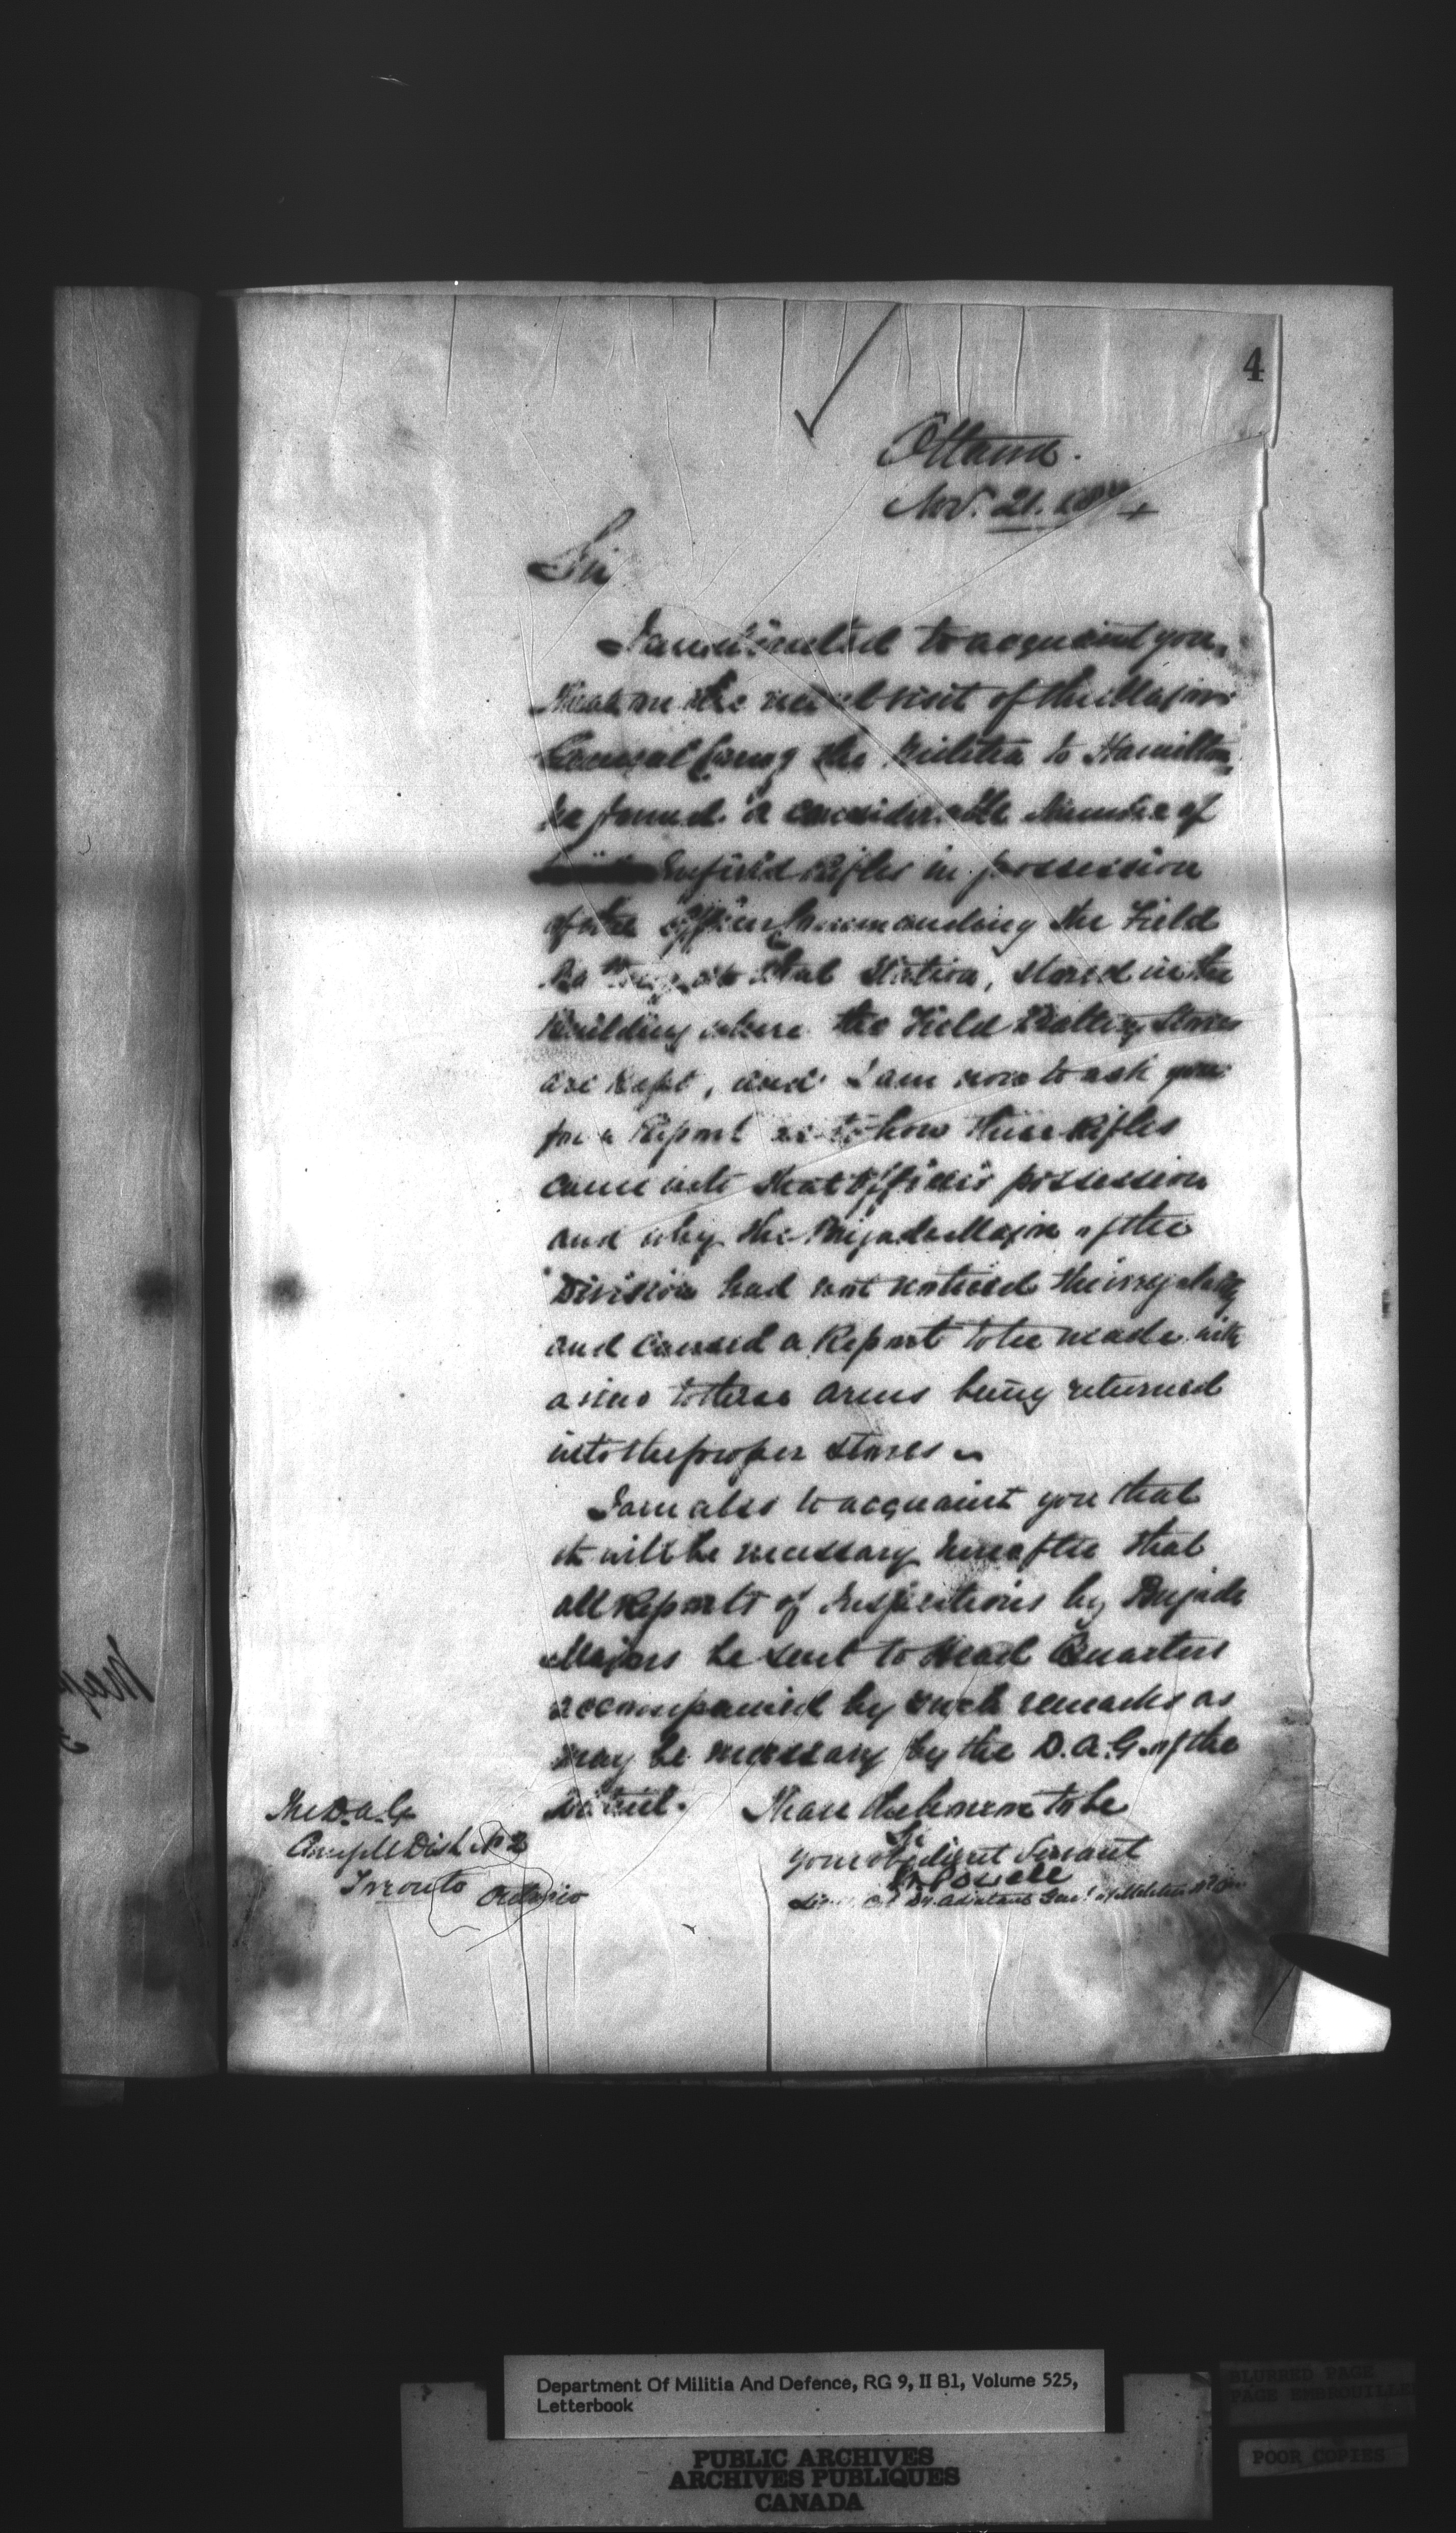 4
Ottawa.
Nov. 21. 1874
Sir
I am directed to acquaint you,
that on the recent visit of the Major
General Comg the Militia to Hamilton,
he found a considerable number of
Enfield rifles in possession
of the Officer Commanding the Field
Battery at that Station, stored in the
building where the Field Battery Stores
are kept, and I am now to ask you
for a Report as to how these Rifles
came into that Officer's possession
and why the Brigade Major of the
Division had not noticed the irregularity
and caused a Report to be made with
a view to these arms being returned
into the proper stores
I am also to acquaint you that
it will be necessary hereafter that
all Reports of Inspections by Brigade
Majors be sent to Head Quarters
accompanied by such remarks as
may be necessary by the D.A.G. of the
District. I have the honor to be
Sir
Your obedient Servant
W Powell
Lieut. Col. Dy. Adjutant Genl. of Militia
The D.A.G.
Comg Mil Dist No 2
Toronto Ontario
Department Of Militia And Defence, RG 9, II B1, Volume 525,
Letterbook
BLURRED PAGE
PAGE EMBROUILLEE
POOR COPIES
PUBLIC ARCHIVES
ARCHIVES PUBLIQUES
CANADA